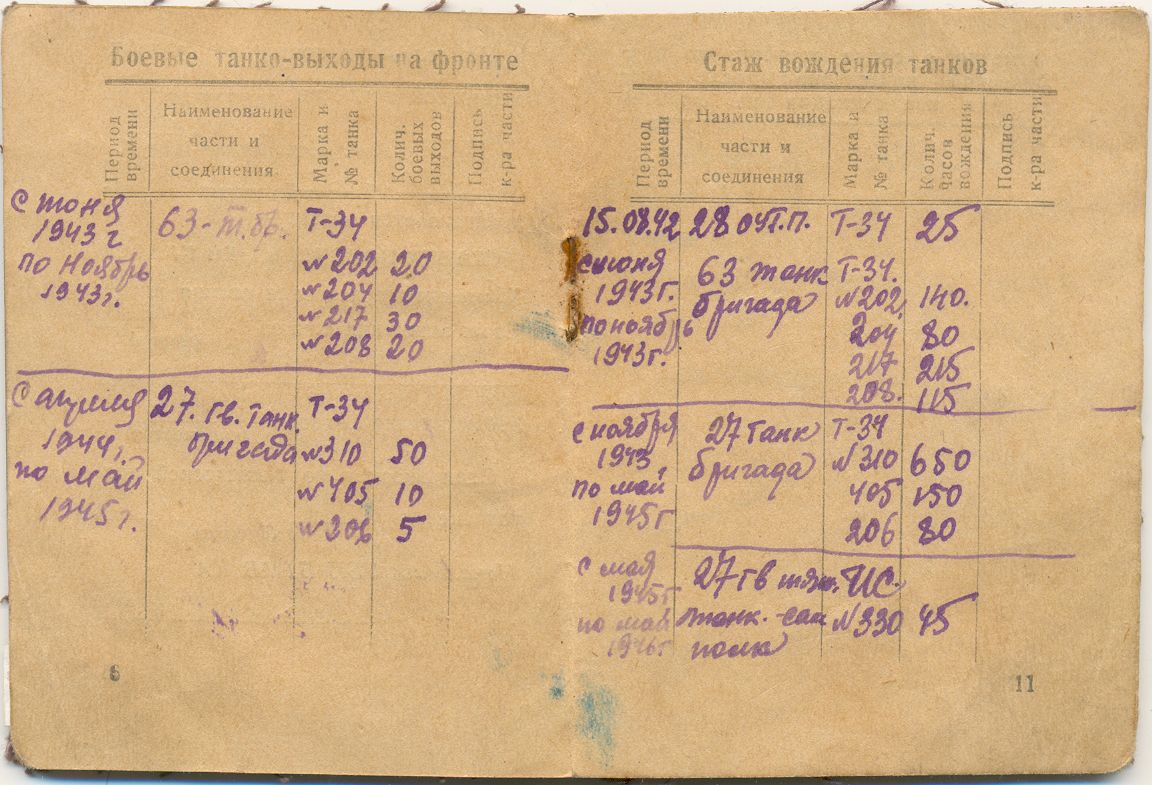 Боевые танко-выходы на фронте
Период времени
Наименование части и соединения
Марка и № танка
Колич. боевых выходов
Подпись к-ра части
с июня 63-т.бр. Т-34
1943г
по ноябрь №202 20
1943г. №204 10
№217 30
№208 20
с апреля 27. гв. танк. Т-34
1944г. бригада №310 50
по май №405 10
1945г. №206 5
8
Стаж вождения танков
Период времени
Наименование части и соединения
Марка и № танка
Колич. часов вождения
Подпись к-ра части
15.08.42 28 оут.п. Т-34 25
с июня 63 танк Т-34.
1943г. бригада №202. 140.
по ноябрь 204 80
1943г. 217 215
208. 115
с ноября 27 танк Т-34
1943г бригада №310 650
по май 405 150
1945г 206 80
с мая 27 гв тяж. ИС.
1945г
по май танк.-сам №330 45
1946г полк
11